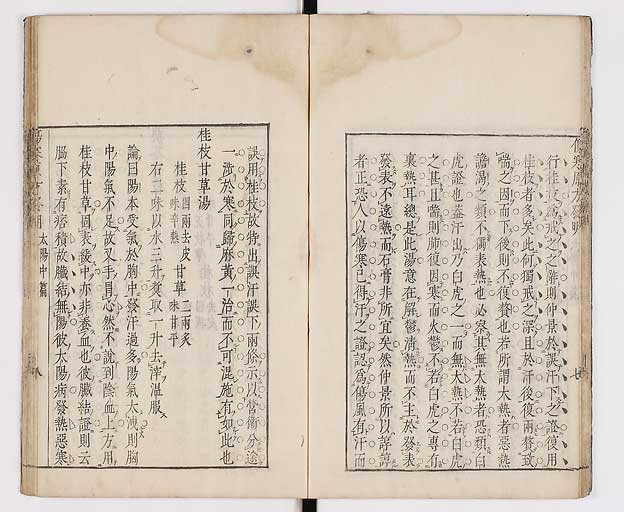 行桂枝爲戒之之辭則仲景於誤汗下之證復用
桂枝者多矣此何獨戒之深且於汗後復兩贅致
喘之因而下後則不復贅也若所謂大熱者惡熱
譫渴之類不獨表熱也必察其無大熱者恐類白
虎證也蓋汗出乃白虎之一而無大熱不若白虎
之甚且喘則肺復因寒而火鬱不若白虎之專有
裏熱耳總是此湯意在解鬱清熱而不主於發表
發表不遠熱而石膏非所宜矣然仲景所以諄諄
者正恐人以傷寒已得汗之證認爲傷風有汗而
誤用桂枝故特出誤汗誤下兩條示以營衛分途
一涉於寒同歸麻黃一治而不可混施有如此也
桂枝甘草湯
桂枝 四兩去皮 味辛熱 甘草 二兩炙 味甘平
右二味以水三升煑取一升去滓溫服
論曰陽本受氣於胸中發汗過多陽氣太洩則胸
中陽氣不足故叉手冒心然不說到陰血上方用
桂枝甘草固表緩中亦非養血也彼臟結證則云
脇下素有痞積故臟結無陽彼太陽病發熱惡寒
太陽中篇